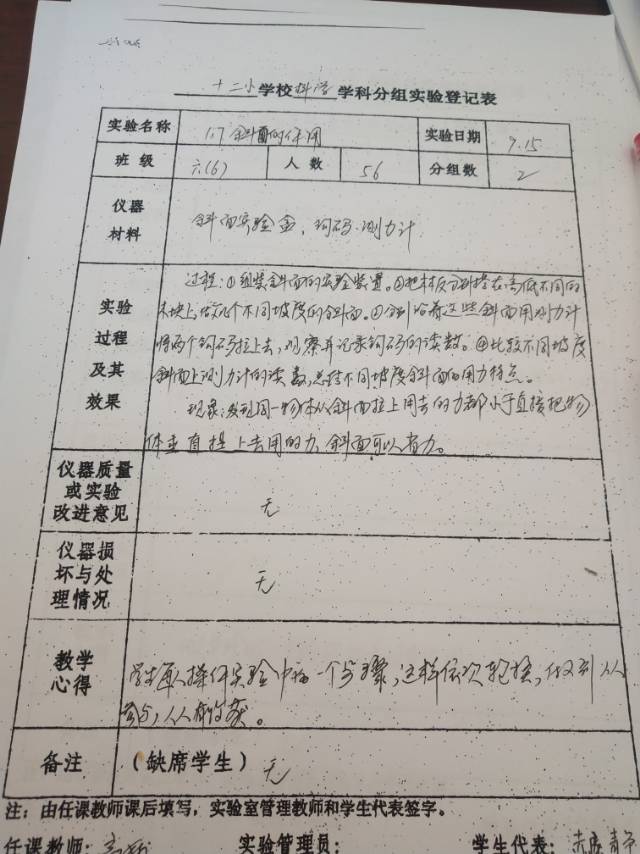 十二小学校科学学科分组实验登记表
实验名称 1.7 斜面的作用 实验日期 9.15
班级 六(6) 人数 56 分组数 2
仪器材料 斜面实验盒、钩码、测力计
实验过程及其效果
过程:①组装斜面的实验装置。②把木板分别搭在高低不同的
木块上,做几个不同坡度的斜面。③分别沿着这些斜面用测力计
将两个钩码拉上去,观察并记录钩码的读数。④比较不同坡度
斜面上测力计的读数,总结不同坡度斜面的用力特点。
现象:发现同一物体从斜面拉上用去的力都小于直接把物
体垂直提上去用的力,斜面可以省力。
仪器质量或实验改进意见 无
仪器损坏与处理情况 无
教学心得
操作实验中的一个步骤,这样依次轮换,做到人人
参与,人人有收获。
备注 (缺席学生) 无
注:由任课教师课后填写,实验室管理教师和学生代表签字。
任课教师: 实验管理员: 学生代表: